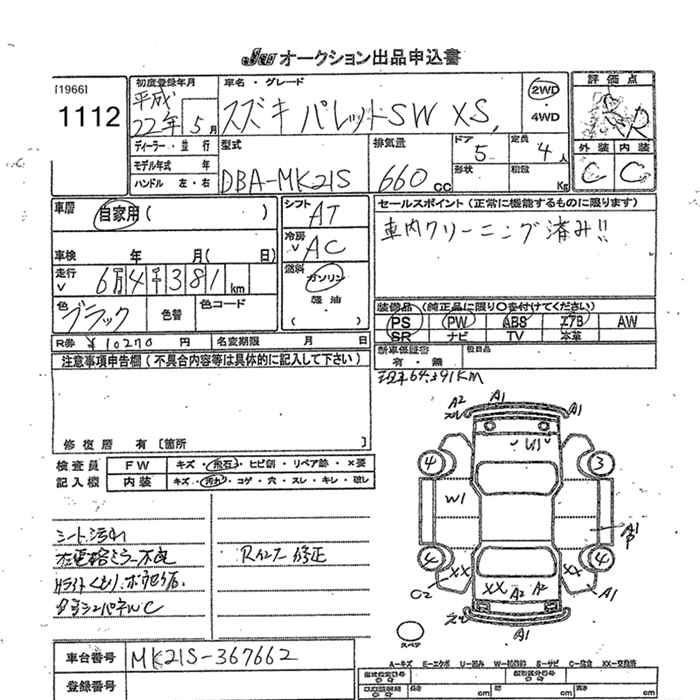 Jau オークション出品申込書
[1966]
1112
初度登録年月
平成
22年5月
車名・グレード
スズキ パレットSW XS
2WD
・4WD
評価点
R
ディーラー・並行
モデル年式 年
ハンドル 左・右
型式
DBA-MK21S
排気量
660cc
ドア
5
形状
定員
4人
積載
Kg
外装 内装
C C
車歴
自家用( )
車検 年 月( 日)
走行
6万4千381km
色
ブラック
色替
色コード
R券 ¥10270円
名変期限 月 日
シフト
AT
冷房
AC
燃料
ガソリン
軽油
セールスポイント(正常に機能するものに限ります)
車内クリーニング済み!!
装備品(純正品に限り○を付けてください)
PS PW ABS エアB AW
SR ナビ TV 本革
新車保証書
有・無
後日品
現車64,391KM
注意事項申告欄(不具合内容等は具体的に記入して下さい)
修復歴 有[箇所 ]
検査員 FW キズ・飛石・ヒビ割・リペア跡・×要
記入欄 内装 キズ・汚れ・コゲ・穴・スレ・キレ・破レ
シート汚れ
左電格ミラー不良
Rインナー修正
A2 A1 A1
4 3
W1
A1
4 4
XX XX
C2 XX A2 A2 A1
A1
スペア
車台番号 MK21S-367662
登録番号
A-キズ E-エクボ U-凹み W-補修跡 S-サビ C-腐食 XX-交換済
長さ cm 幅 cm 高さ cm